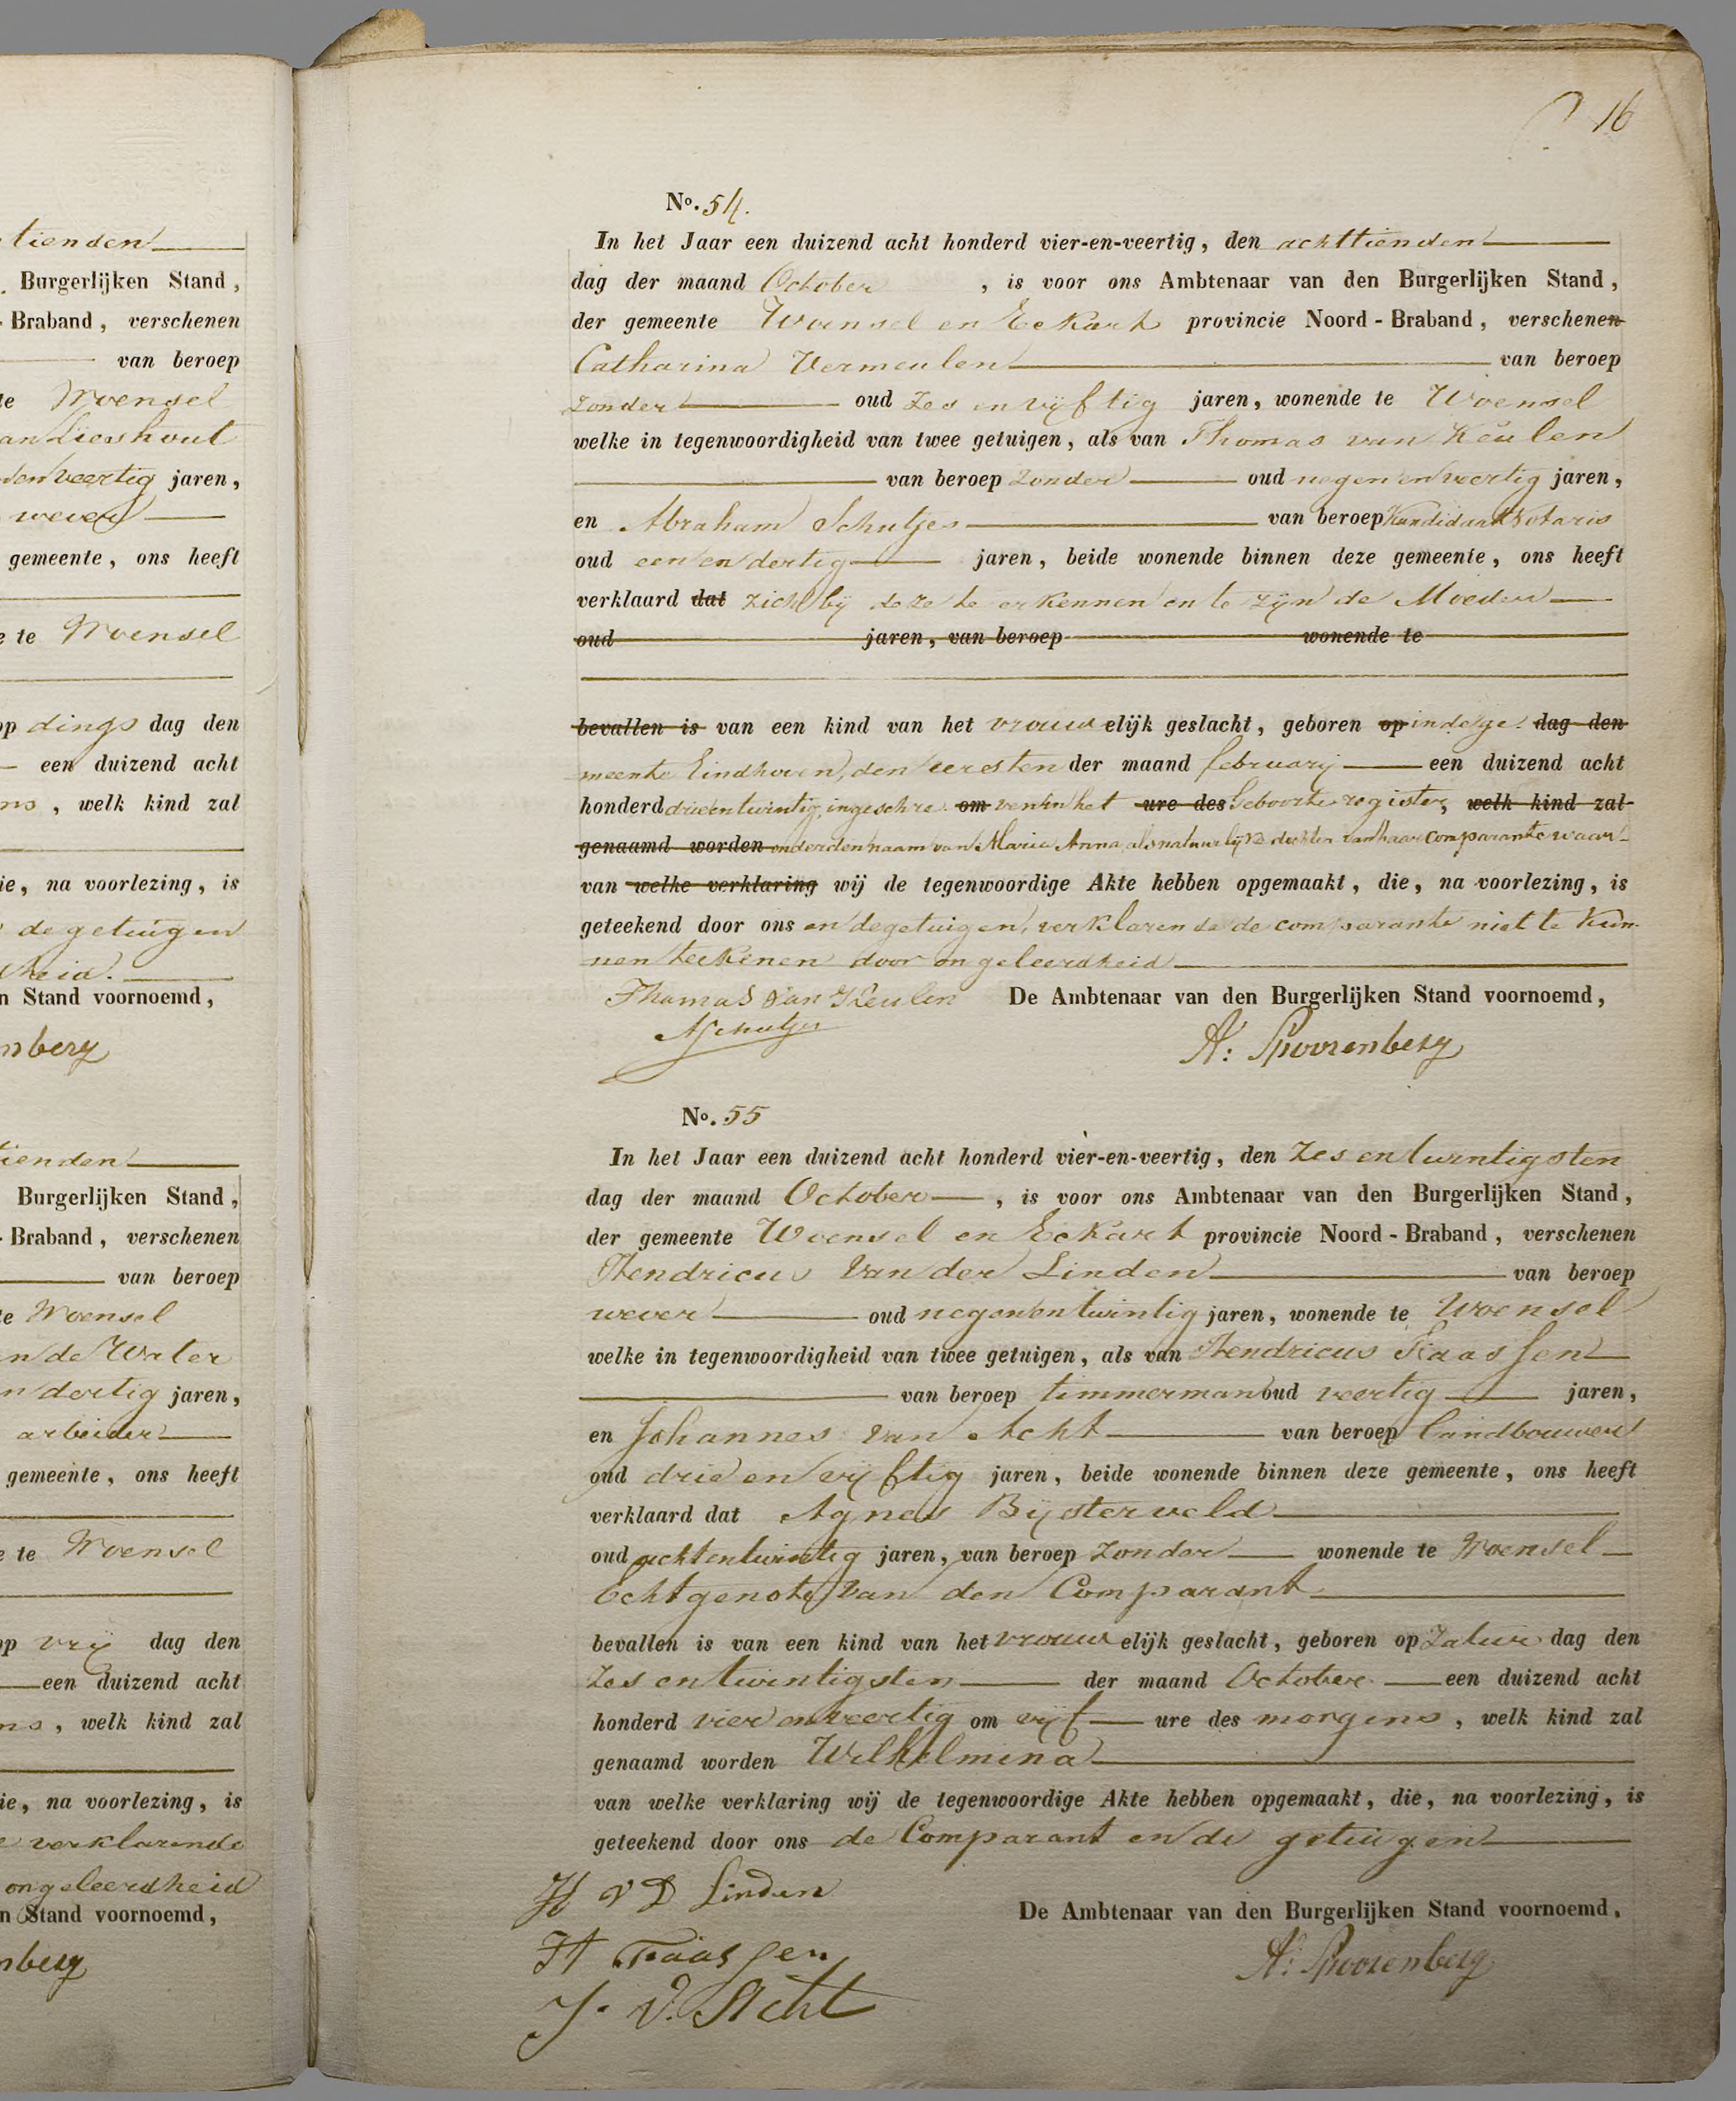 tienden
Burgerlijken Stand,
- Braband, verschenen
van beroep
te Woensel
van Lieshout
en veertig jaren,
wever
gemeente, ons heeft
te Woensel
op dings dag den
een duizend acht
, welk kind zal
die, na voorlezing, is
de getuigen
heid.
n Stand voornoemd,
nberg
tienden
Burgerlijken Stand,
- Braband, verschenen
van beroep
te Woensel
n de Water
n dertig jaren,
arbeider
gemeente, ons heeft
te Woensel
op vrij dag den
een duizend acht
, welk kind zal
die, na voorlezing, is
verklarende
ongeleerdheid
n Stand voornoemd,
nberg
16
No. 54.
In het Jaar een duizend acht honderd vier-en-veertig, den achttienden
dag der maand October , is voor ons Ambtenaar van den Burgerlijken Stand,
der gemeente Woensel en Eckart provincie Noord - Braband, verschenen
Catharina Vermeulen van beroep
zonder oud zes en vijftig jaren, wonende te Woensel
welke in tegenwoordigheid van twee getuigen, als van Thomas van Keulen
van beroep zonder oud negen en veertig jaren,
en Abraham Schutjes van beroep Kandidaat Notaris
oud een en dertig jaren, beide wonende binnen deze gemeente, ons heeft
verklaard dat zich bij deze te erkennen en te zijn de Moeder
oud jaren, van beroep wonende te
bevallen is van een kind van het vrouw elijk geslacht, geboren op in de ge- dag den
meente Eindhoven, den eersten der maand february een duizend acht
honderd drieentwintig, ingeschre- om ven in het ure des Geboorte register, welk kind zal
genaamd worden onder den naam van Maria Anna, als natuurlijke dochter van haar Comparante waar-
van welke verklaring wij de tegenwoordige Akte hebben opgemaakt, die, na voorlezing, is
geteekend door ons en de getuigen, verklarende de comparante niet te kun-
nen teekenen door ongeleerdheid
Thomas Van Keulen De Ambtenaar van den Burgerlijken Stand voornoemd,
ASchutjes
A: Spoorenberg
No. 55
In het Jaar een duizend acht honderd vier-en-veertig, den zes en twintigsten
dag der maand October , is voor ons Ambtenaar van den Burgerlijken Stand,
der gemeente Woensel en Eckart provincie Noord - Braband, verschenen
Hendricus Van der Linden van beroep
wever oud negen en twintig jaren, wonende te Woensel
welke in tegenwoordigheid van twee getuigen, als van Hendricus Faassen
van beroep timmerman oud veertig jaren,
en Johannes van Acht van beroep landbouwer
oud drie en vijftig jaren, beide wonende binnen deze gemeente, ons heeft
verklaard dat Agnes Bijsterveld
oud achtentwintig jaren, van beroep zonder wonende te Woensel
Echtgenote van den Comparant
bevallen is van een kind van het vrouw elijk geslacht, geboren op Zatur dag den
zes en twintigsten der maand October een duizend acht
honderd vier en veertig om vijf ure des morgens, welk kind zal
genaamd worden Wilhelmina
van welke verklaring wij de tegenwoordige Akte hebben opgemaakt, die, na voorlezing, is
geteekend door ons de Comparant en de getuigen
H V D Linden
De Ambtenaar van den Burgerlijken Stand voornoemd,
H Faassen
A: Spoorenberg
J. V. Acht